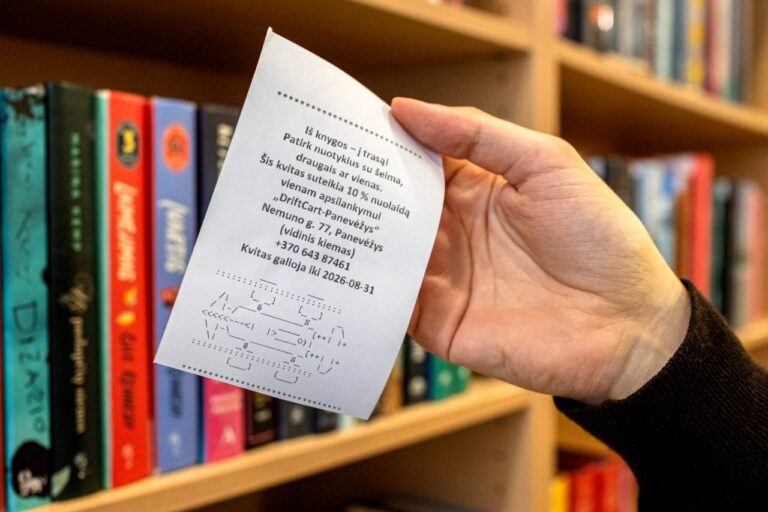 Iš knygos – į trasą!
Patirk nuotykius su šeima,
draugais ar vienas.
Šis kvitas suteikia 10 % nuolaidą
vienam apsilankymui
„DriftCart-Panevėžys“
Nemuno g. 77, Panevėžys
(vidinis kiemas)
+370 643 87461
Kvitas galioja iki 2026-08-31